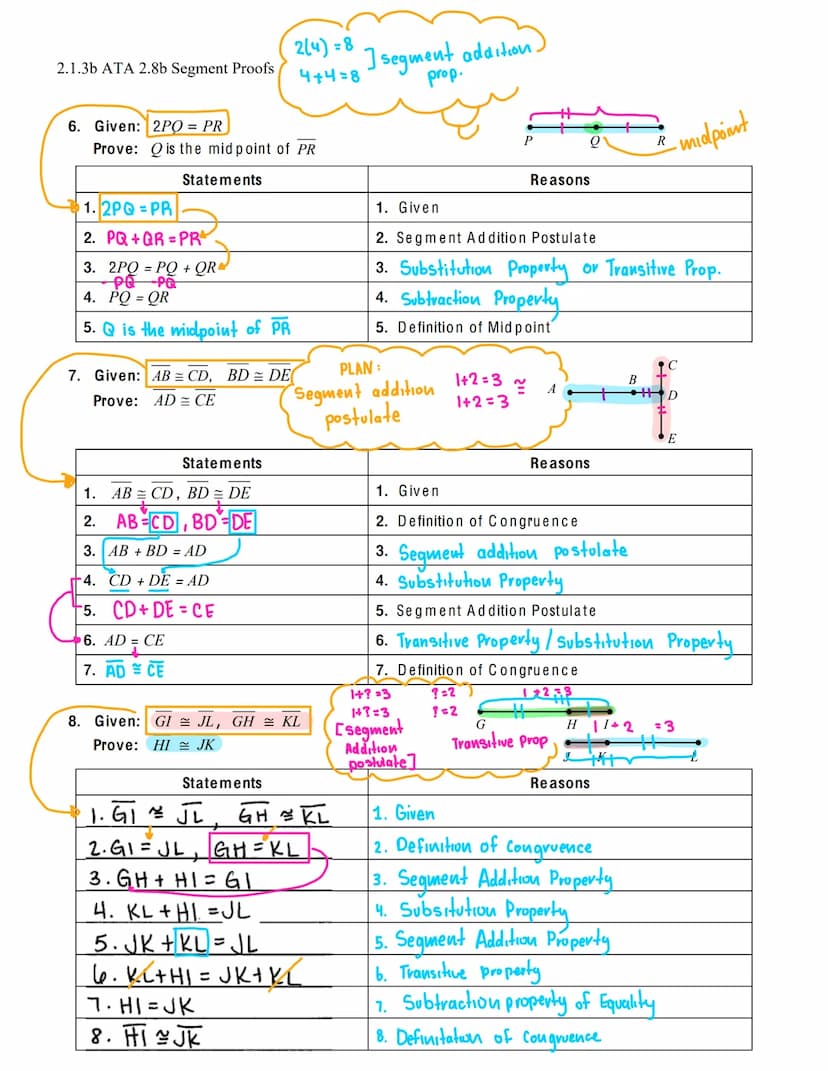 2(4) = 8
4+4=8
] segment addition
prop.
2.1.3b ATA 2.8b Segment Proofs
6. Given: 2PQ = PR
Prove: Q is the midpoint of PR
P Q R
midpoint
Statements Reasons
1. 2PQ = PR 1. Given
2. PQ + QR = PR 2. Segment Addition Postulate
3. 2PQ = PQ + QR 3. Substitution Property or Transitive Prop.
- PQ -PQ
4. PQ = QR 4. Subtraction Property
5. Q is the midpoint of PR 5. Definition of Midpoint
7. Given: AB ≅ CD, BD ≅ DE
Prove: AD ≅ CE
PLAN:
Segment addition
postulate
1+2=3
1+2=3
≅
A B C D E
Statements Reasons
1. AB ≅ CD, BD ≅ DE 1. Given
2. AB=CD, BD=DE 2. Definition of Congruence
3. AB + BD = AD 3. Segment addition postulate
4. CD + DE = AD 4. Substitution Property
5. CD+DE = CE 5. Segment Addition Postulate
6. AD = CE 6. Transitive Property / Substitution Property
7. AD ≅ CE 7. Definition of Congruence
8. Given: GI ≅ JL, GH ≅ KL
Prove: HI ≅ JK
1+?=3 ?=2
1+?=3 ?=2
[segment
Addition
postulate]
Transitive Prop
1+2=3
G H I
1+2 =3
J K L
Statements Reasons
1. GI ≅ JL, GH ≅ KL 1. Given
2. GI = JL, GH = KL 2. Definition of Congruence
3. GH + HI = GI 3. Segment Addition Property
4. KL + HI = JL 4. Subsitution Property
5. JK + KL = JL 5. Segment Addition Property
6. KL+HI = JK+KL 6. Transitive property
7. HI = JK 7. Subtraction property of Equality
8. HI ≅ JK 8. Definitation of Congruence